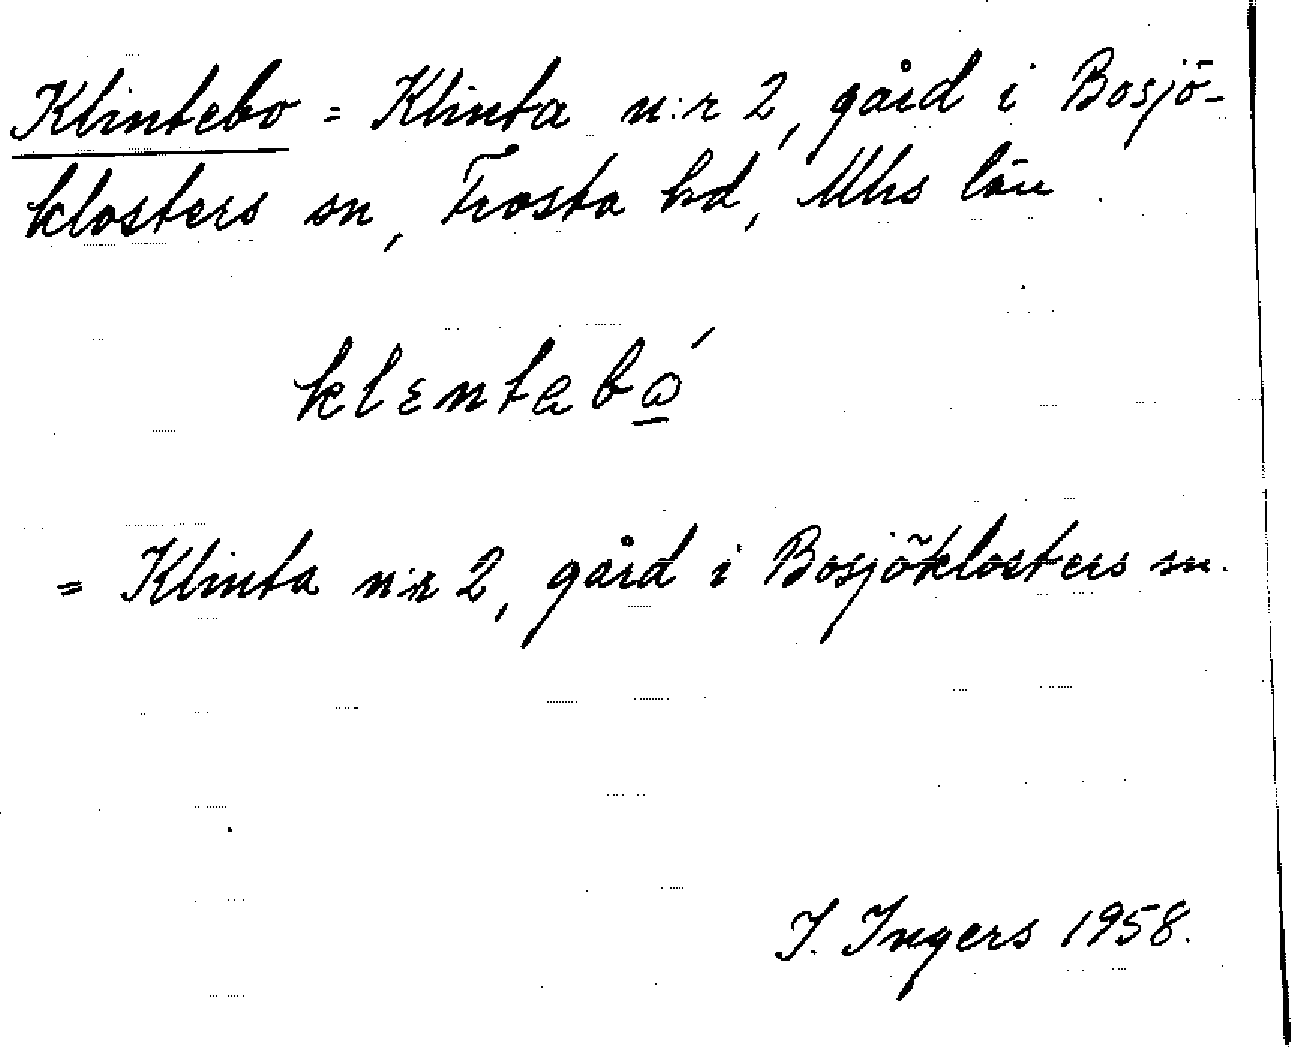 Klintebo = Klinta n:r 2, gård i Bosjö-
klosters sn, Frosta hd, Mhs län.
klɛntəbó̲
= Klinta n:r 2, gård i Bosjöklosters sn.
I. Ingers 1958.